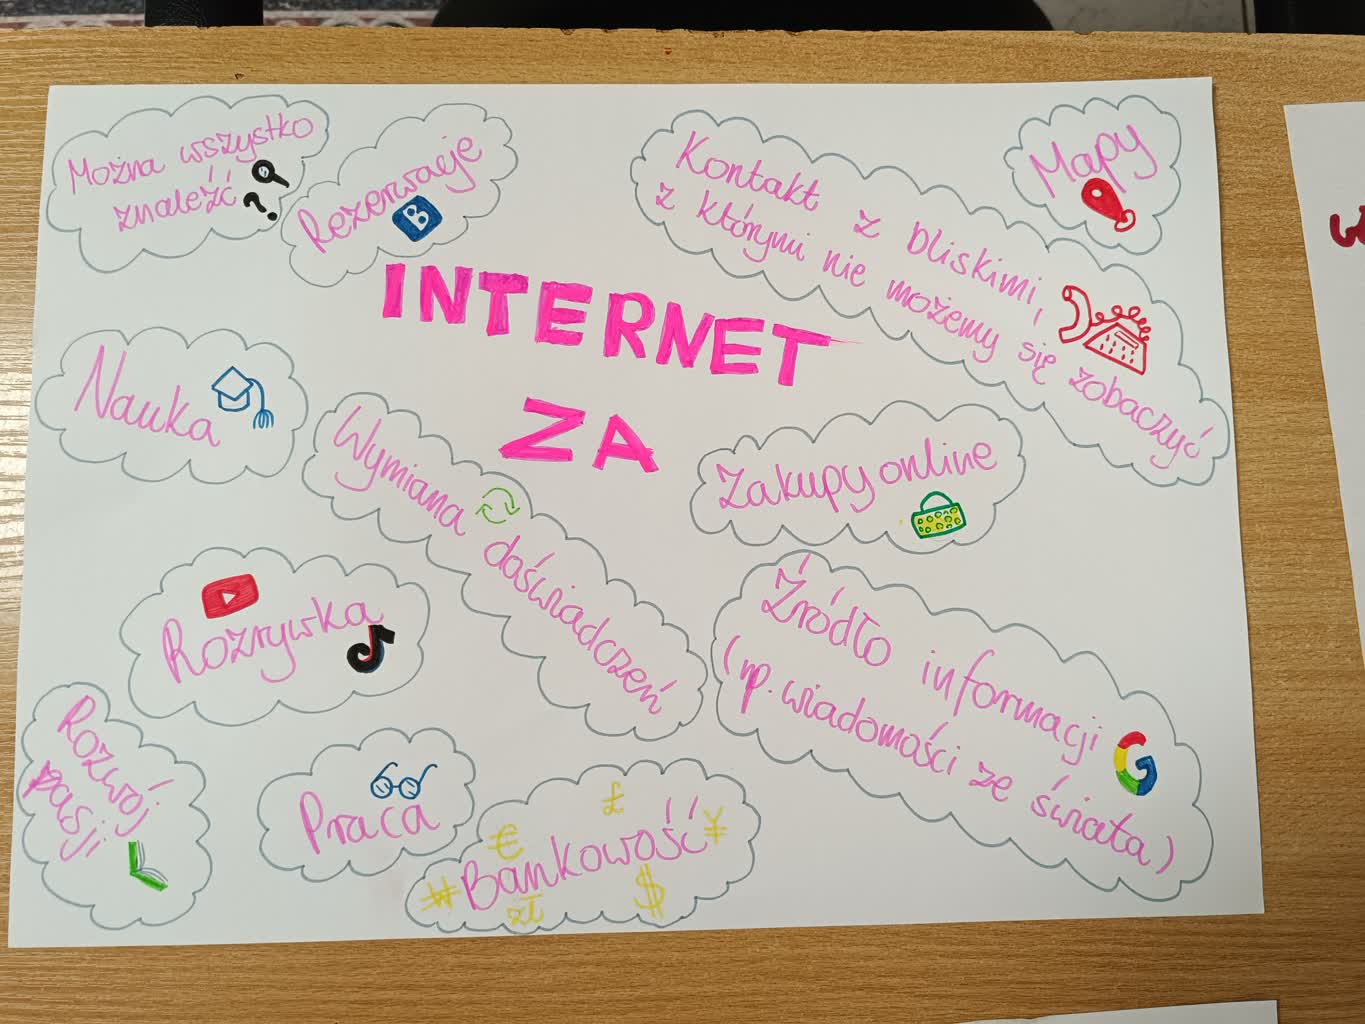 Można wszystko
znaleźć
Rezerwacje
B
Kontakt z bliskimi,
z którymi nie możemy się zobaczyć
Mapy
INTERNET
ZA
Nauka
Wymiana
doświadczeń
Zakupy online
Rozrywka
Źródło informacji
(np. wiadomości ze świata)
G
Rozwój
pasji
Praca
Bankowość
£
€
¥
₩
zł
$